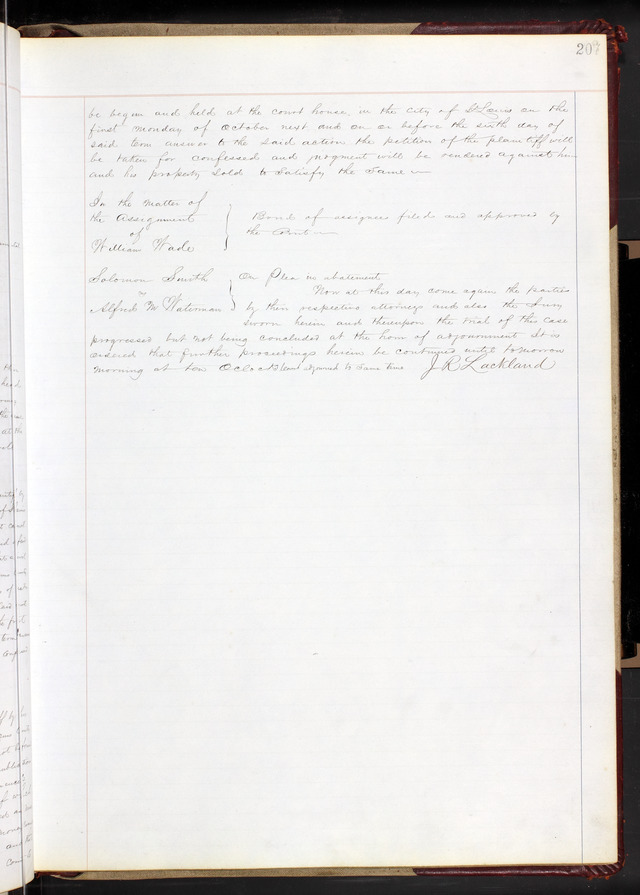 207
be begun and held at the court house in the City of St Louis on the
first Monday of October next and on or before the sixth day of
said term answer to the said action the petition of the plaintiff will
be taken for confessed and judgment will be rendered against him
and his property sold to Satisfy the Same
In the matter of
the Assignment
of
William Wade
Bond of assignee filed and approved by
the Court
Solomon Smith
vs
Alfred M Waterman
On Plea in abatement
Now at this day come again the parties
by their respective attorneys and also the Jury
sworn herein and thereupon the trial of this case
progressed but not being concluded at the hour of adjournment It is
ordered that further proceedings herein be continued until tomorrow
morning at ten Oclock Court adjourned to same time
J R Lackland